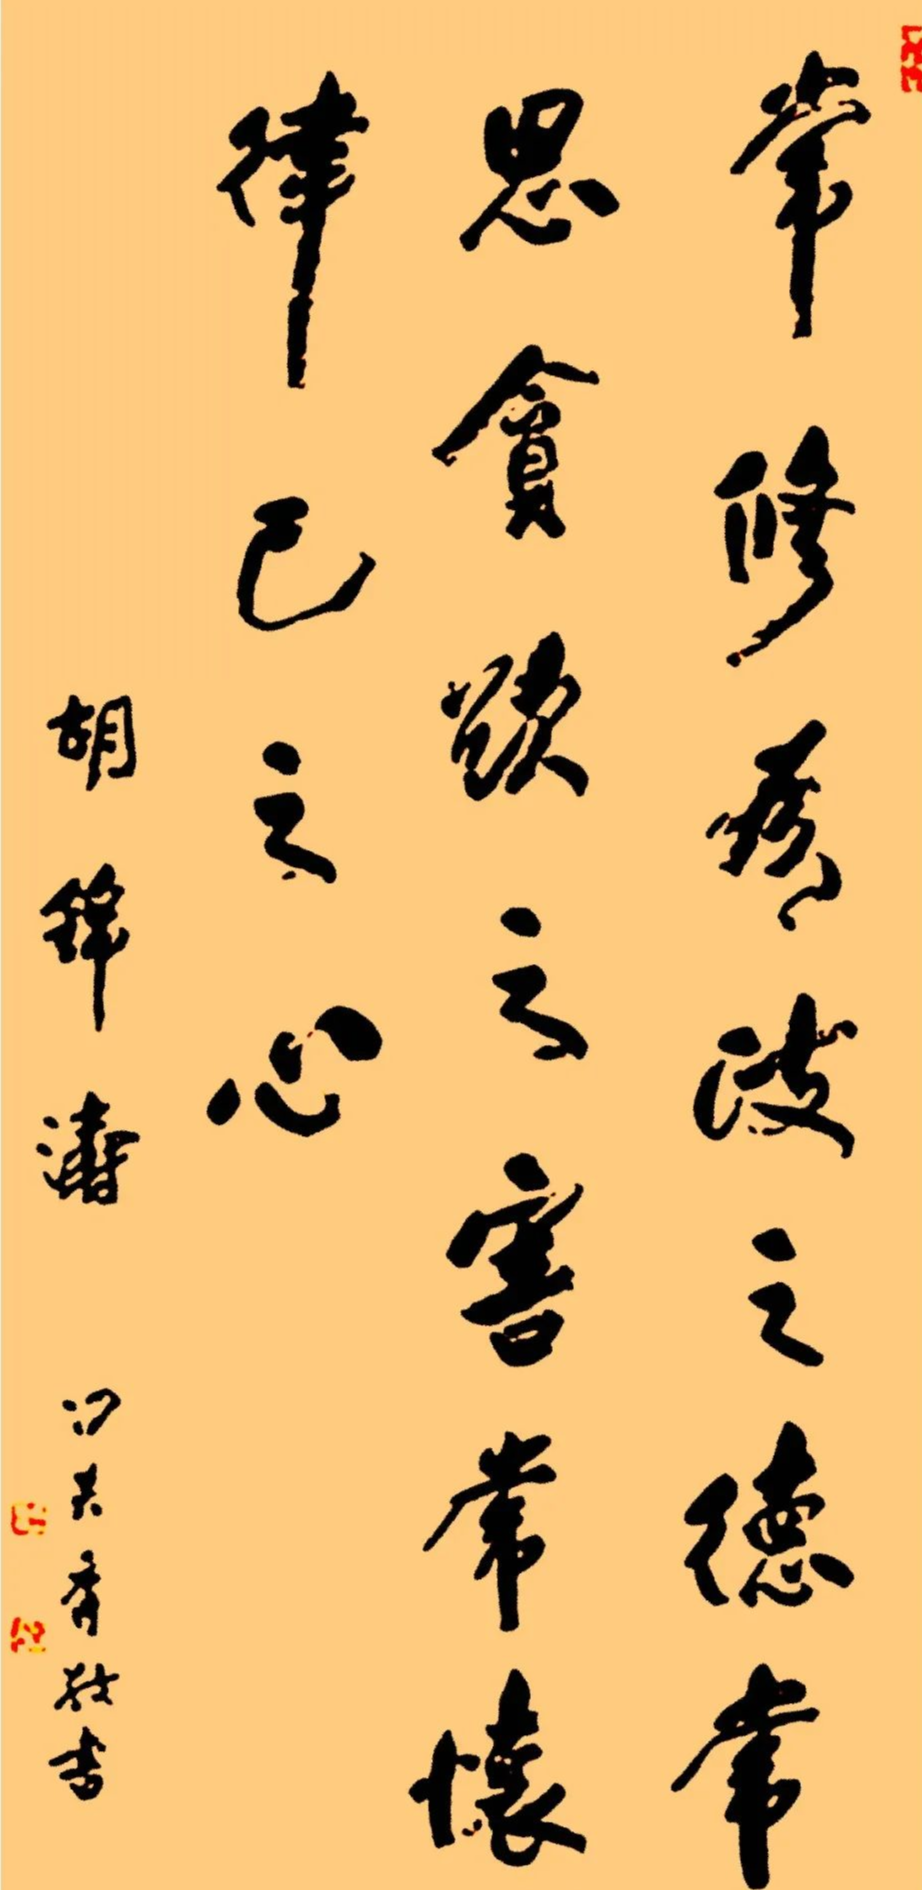 常修為政之德常
思貪欲之害常懷
律己之心
胡錦濤
敬书